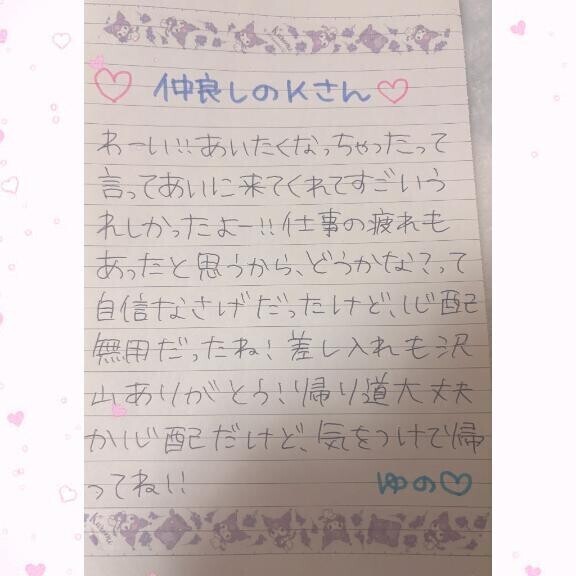 仲良しのKさん
わーい!!あいたくなっちゃったって
言ってあいに来てくれてすごいう
れしかったよー!!仕事の疲れも
あったと思うから、どうかな?って
自信なさげだったけど、心配
無用だったね!差し入れも沢
山ありがとう!!帰り道大丈夫
か心配だけど、気をつけて帰
ってね!!
ゆの